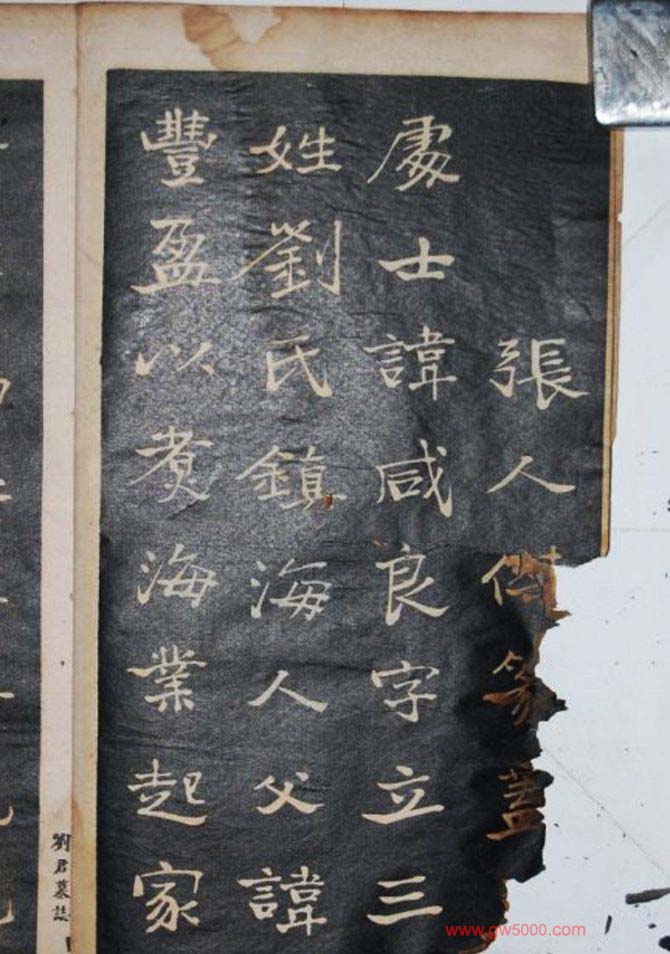 張人傑篆蓋
處士諱咸良字立三
姓劉氏鎮海人父諱
豐盈以煑海業起家
劉君墓誌
www.gw5000.com